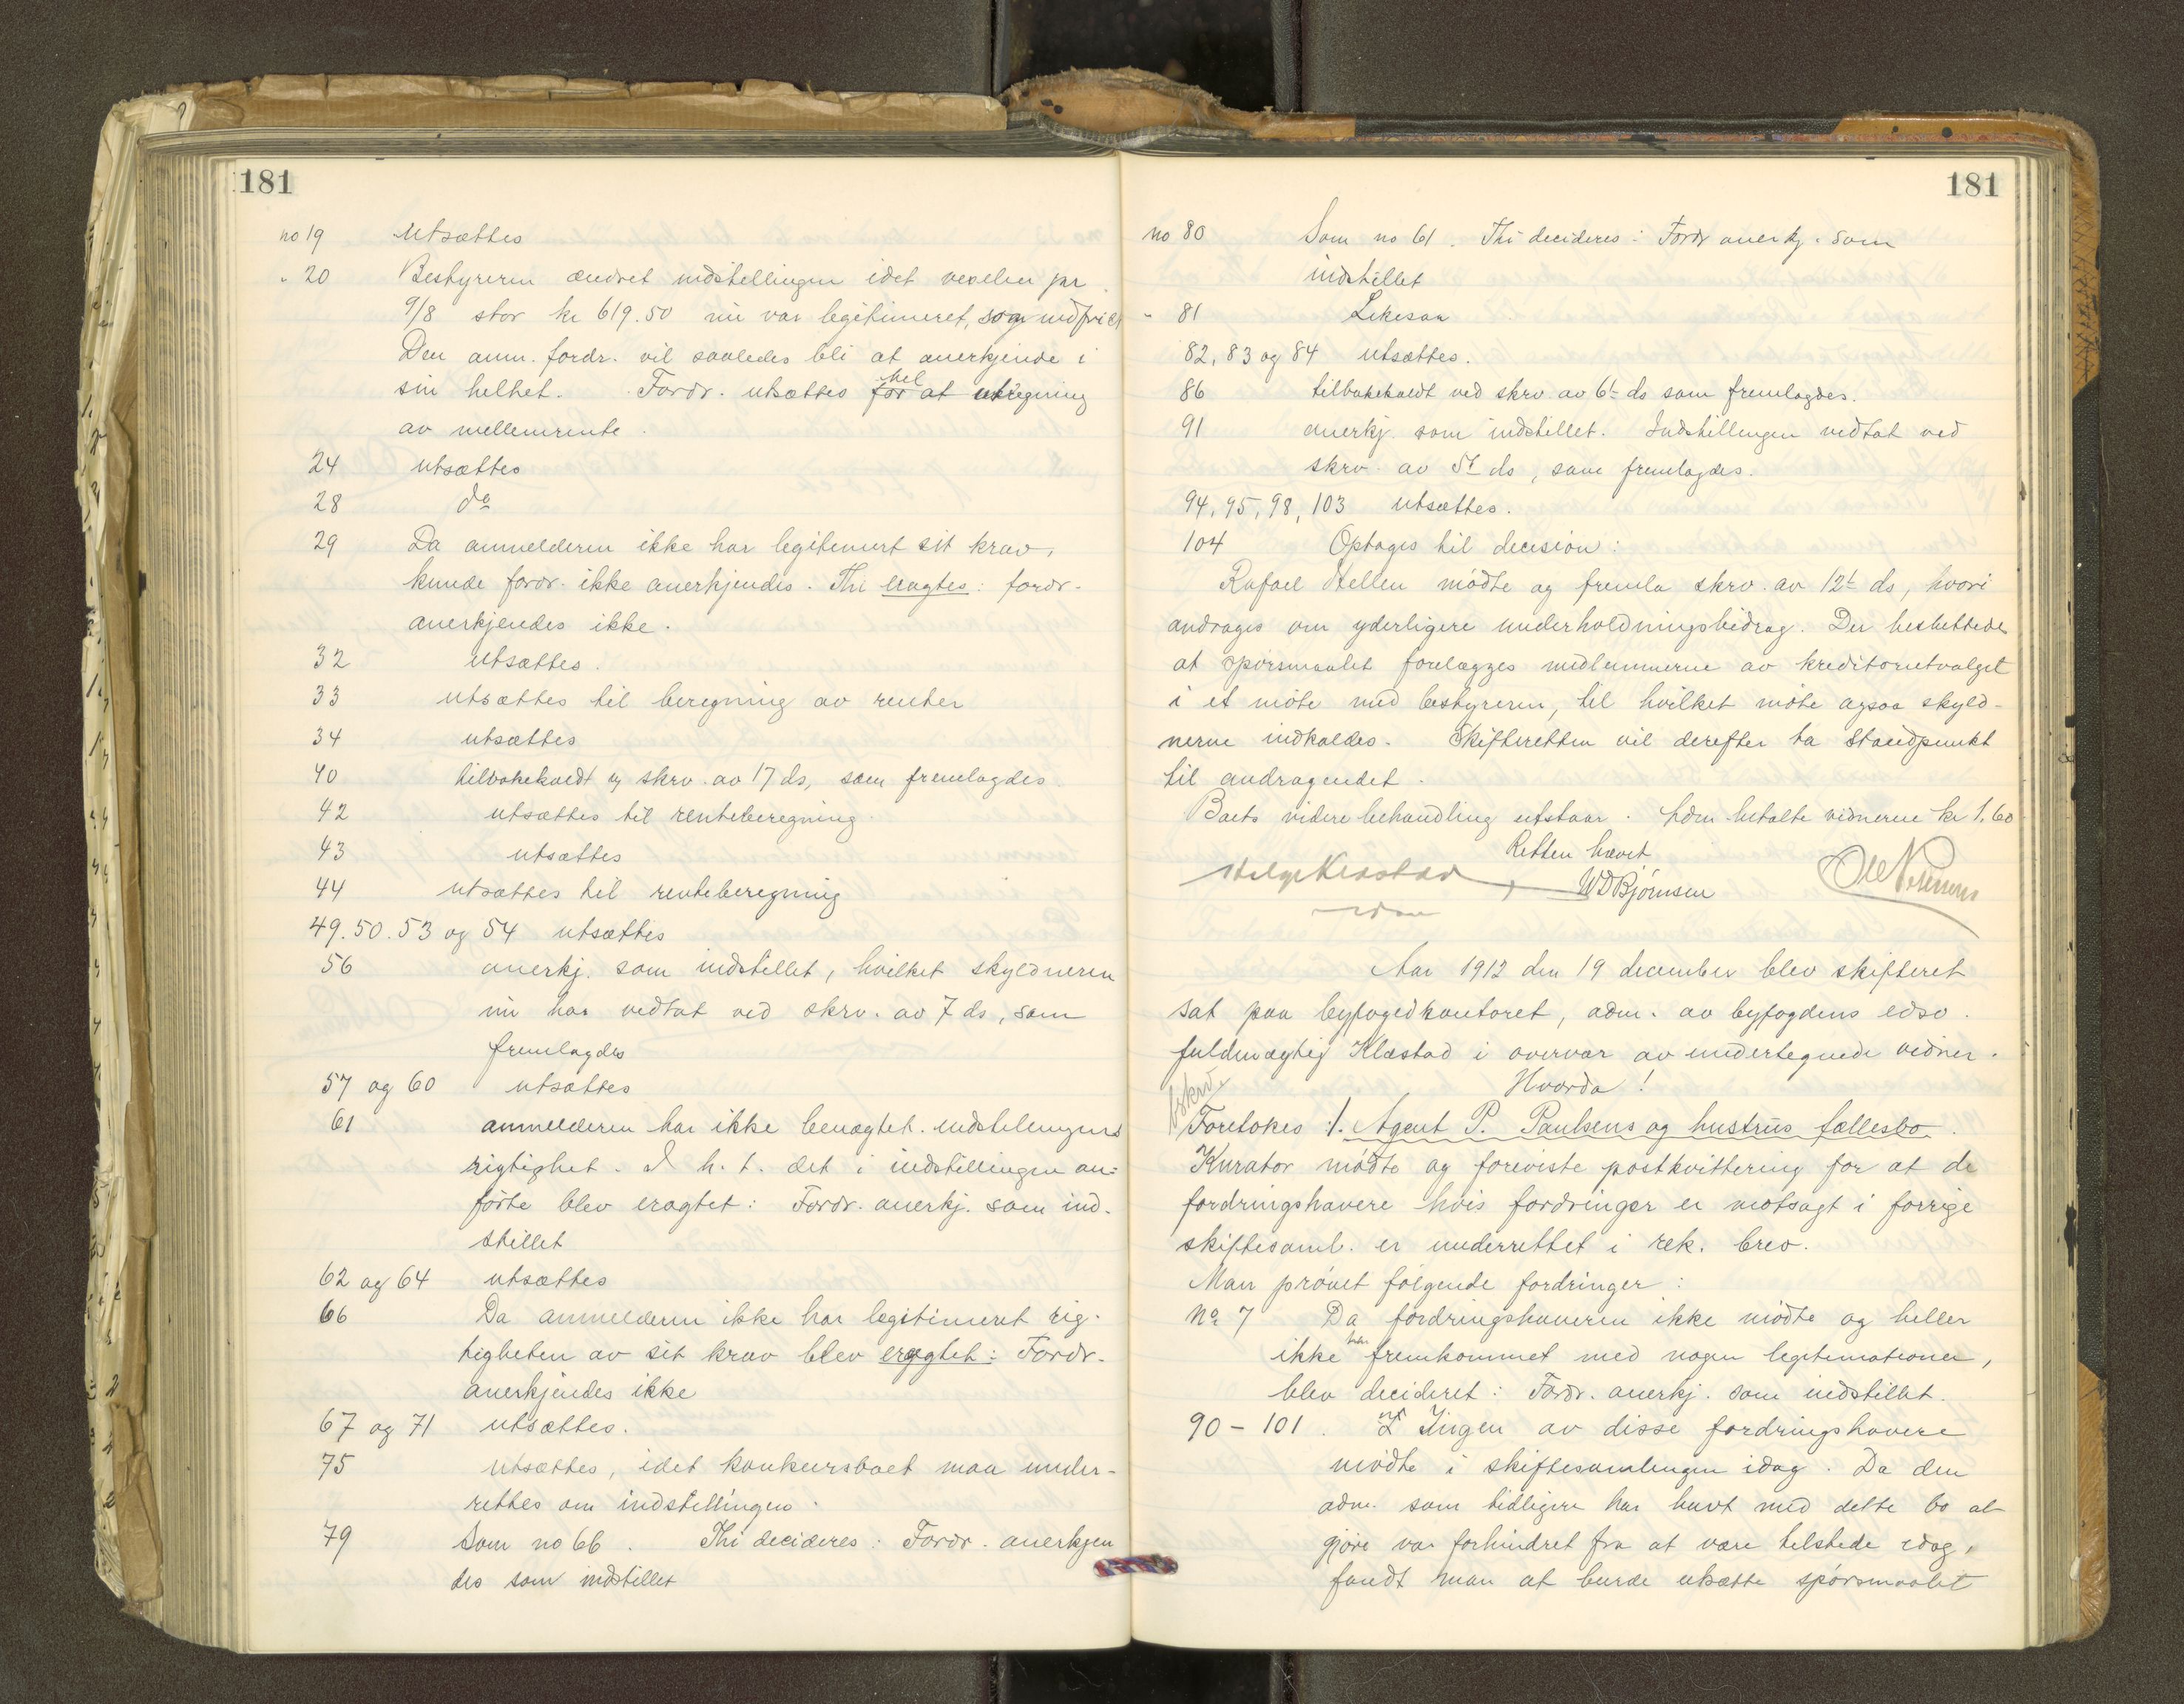 181
no 19 Utsættes
" 20 Bestyreren ændret indstillingen idet vexelen pr
9/8 stor kr 619.50 nu var legitimeret,
Den anm. fordr. vil saaledes bli at anerkjende i
sin helhet. Fordr. utsættes for til at utregning
av mellemrente.
24 utsættes
28 do
29 Da anmelderen ikke har legitimert sit krav,
kunde fordr. ikke anerkjendes. Thi eragtes: fordr.
anerkjendes ikke.
32 Utsættes.
33 utsættes til beregning av renter
34 utsættes
40 tilbakekaldt v/ skrv. av 17 ds, som fremlagdes.
42 utsættes til renteberegning.
43 utsættes
44 utsættes til renteberegning
49. 50. 53 og 54 utsættes
56 anerkj. som indstillet, hvilket skyldneren
nu har vedtat ved skrv. av 7 ds, som
fremlagdes
57 og 60 utsættes
61 anmelderen har ikke benægtet indstillingens
rigtighet. I h. t. det i indstillingen an-
førte blev eragtet: Fordr. anerkj. som ind-
stillet
62 og 64 utsættes
66 Da anmelderen ikke har legitimeret rig-
tigheten av sit krav blev eragtet: Fordr.
anerkjendes ikke
67 og 71 utsættes.
75 Utsættes, idet konkursboet maa under-
rettes om indstillingen.
79 Som no 66. Thi decideres: Fordr. anerkjen
des som indstillet
181
no 80 Som no 61. Thi decideres: Fordr anerkj. som
indstillet
" 81 Likesaa
82, 83 og 84 utsættes.
86 tilbakekaldt ved skrv. av 6t ds som fremlagdes.
91 anerkj. som indstillet. Indstillingen vedtat ved
skrv. av 5t ds, som fremlagdes.
94, 95, 98, 103 utsættes.
104 Optages til decision:
Rafael Hellen mødte og fremla skrv. av 12t ds, hvori
andrages om yderligere underholdningsbidrag. Der besluttedes
at spørsmaalet forelægges medlemmerne av kreditorutvalget
i et møte med bestyreren, til hvilket møte ogsaa skyld-
nerne indkaldes. Skifteretten vil derefter ta standpunkt
til andragendet.
Boets videre behandling utstaar. Adm. betalte vidnerne kr 1.60
Retten hævet
Helge Klæstad
WD Bjørnsen
Aar 1912 den 19 december blev skifteret
sat paa byfogedkontoret, adm. av byfogdens edsv.
fuldmægtig Klæstad i overvær av undertegnede vidner.
Hvorda!
Foretokes: 1. Agent P. Paulsens og hustrus fællesbo.
Kurator mødte og foreviste postkvittering for at de
fordringshavere hvis fordringer er motsagt i forrige
skiftesaml. er underrettet i rek. brev.
Man prøvet følgende fordringer:
No 7 Da fordringshaveren ikke mødte og heller
ikke har fremkommet med nogen legitimationer,
blev decideret: Fordr. anerkj. som indstillet.
90 - 101. Ingen av disse fordringshavere
mødte i skiftesamlingen idag. Da den
adm. som tidligere har havt med dette bo at
gjøre var forhindret fra at være tilstede idag,
fandt man at burde utsætte spørsmaalet